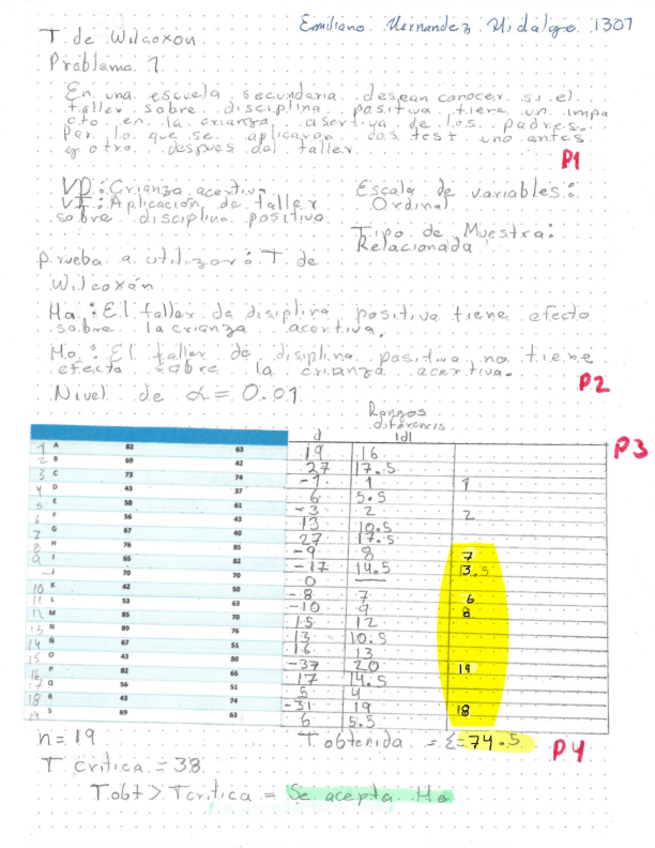 Emiliano Hernandez Hidalgo 1307
T de Wilcoxon
Problema 1
En una escuela secundaria desean conocer si el
taller sobre disciplina positiva tiene un impa
cto en la crianza asertiva de los padres.
Por lo que se aplicaron dos test uno antes
y otro despues del taller
P1
VD: Crianza acertiva
VI: Aplicación de taller
sobre disciplina positiva
Escala de variables:
Ordinal
Tipo de Muestra:
Relacionada
prueba a utilizar: T de
Wilcoxón
Ha: El taller de disiplina positiva tiene efecto
sobre la crianza acertiva.
Ho: El taller de disiplina positiva no tiene
efecto sobre la crianza acertiva.
P2
Nivel de α = 0.01
Rangos
diferencis
d |d|
P3
1 A 82 63 19 16
2 B 69 42 27 17.5
3 C 73 74 -1 1 1
4 D 43 37 6 5.5
5 E 58 61 -3 2 2
6 F 56 43 13 10.5
7 G 67 40 27 17.5
8 H 76 85 -9 8 7
9 I 65 82 -17 14.5 13.5
— J 70 70 0 —
10 K 42 50 -8 7 6
11 L 53 63 -10 9 8
12 M 85 70 15 12
13 N 89 76 13 10.5
14 Ñ 67 51 16 13
15 O 43 80 -37 20 19
16 P 82 65 17 14.5
17 Q 56 51 5 4
18 R 43 74 -31 19 18
19 S 69 63 6 5.5
n = 19
T obtenida = Σ = 74.5
P4
T critica = 38
Tobt > Tcritica = Se acepta Ho